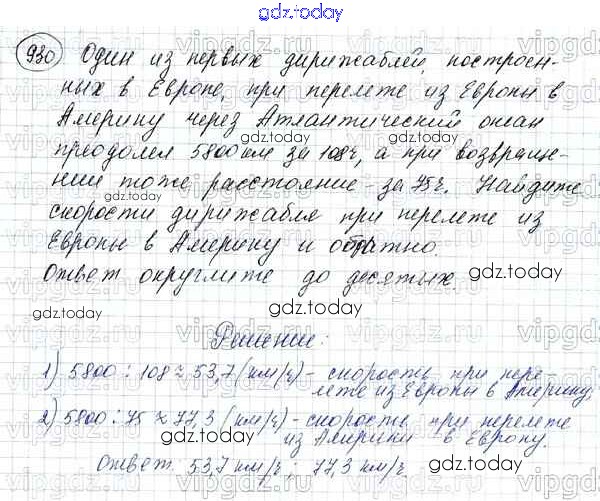 gdz.today
930 Один из первых дирижаблей, построен-
ных в Европе, при перелете из Европы в
Америку через Атлантический океан
преодолел 5800 км за 108 ч, а при возвраще-
нии тоже расстояние - за 75 ч. Найдите
скорости дирижабля при перелете из
Европы в Америку и обратно.
Ответ округлите до десятых
Решение:
1) 5800 : 108 ≈ 53,7 (км/ч) - скорость при пере-
лете из Европы в Америку;
2) 5800 : 75 ≈ 77,3 (км/ч) - скорость при перелете
из Америки в Европу.
Ответ. 53,7 км/ч ; 77,3 км/ч